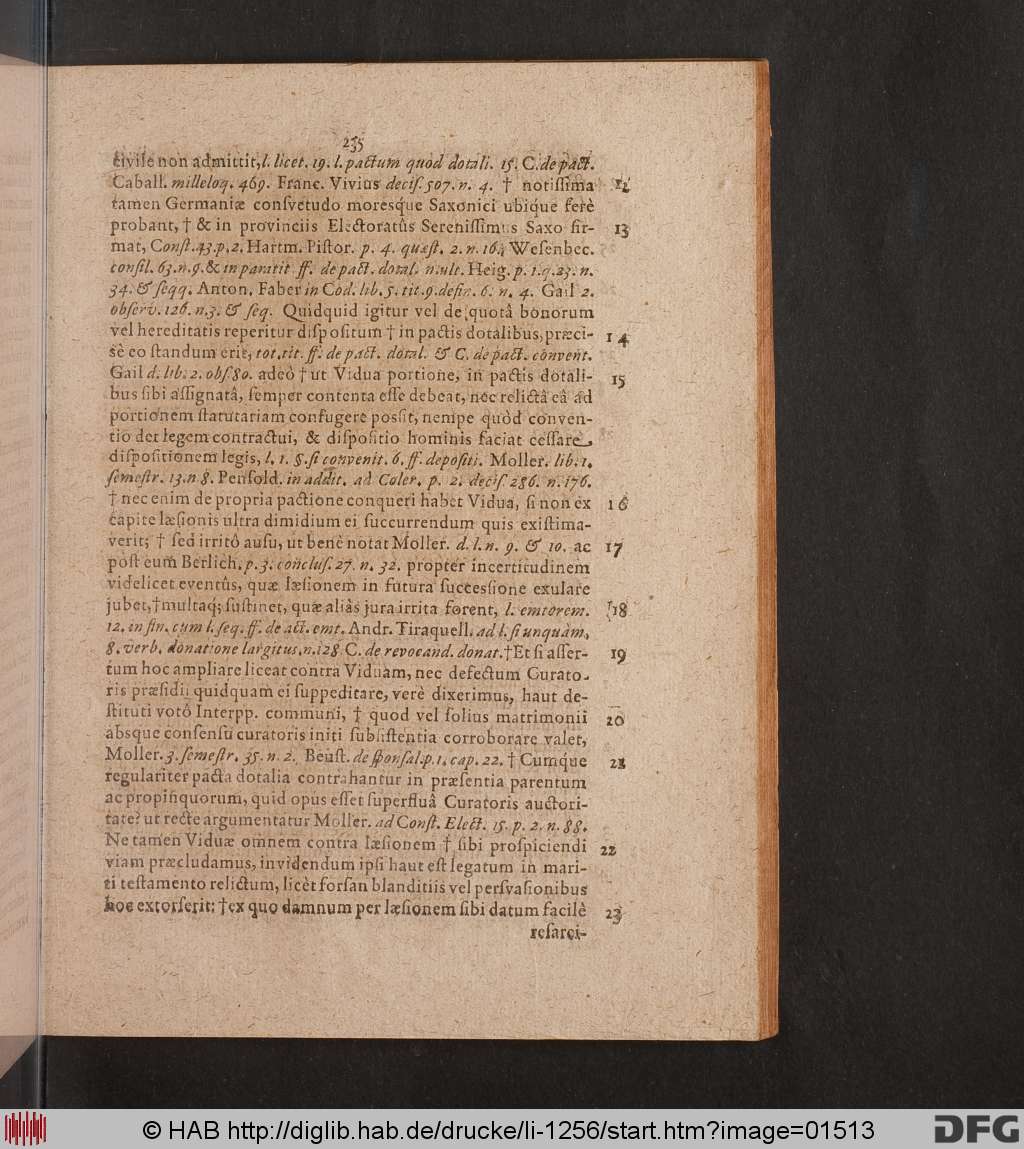 235
civile non admittit, l. licet. 19. l. pactum quod dotali. 15. C. de pact.
Caball. milleloq. 469. Franc. Vivius decis. 507. n. 4. † notissima 12
tamen Germaniæ consvetudo moresque Saxonici ubique ferè
probant, † & in provinciis Electoratûs Serenissimus Saxo fir- 13
mat, Const. 43. p. 2. Hartm. Pistor. p. 4. quæst. 2. n. 16. Wesenbec.
consil. 63. n. 9. & in paratit. ff. de pact. dotal. n. ult. Heig. p. 1. q. 23. n.
34. & seqq. Anton. Faber in Cod. lib. 5. tit. 9. defin. 6. n. 4. Gail 2.
observ. 126. n. 3. & seq. Quidquid igitur vel de quotâ bonorum
vel hereditatis reperitur dispositum † in pactis dotalibus, præci- 14
sè eo standum erit, tot. tit. ff. de pact. dotal. & C. de pact. convent.
Gail d. lib. 2. obs. 80. adeò † ut Vidua portione, in pactis dotali- 15
bus sibi assignatâ, semper contenta esse debeat, nec relictâ eâ ad
portionem statutariam confugere possit, nempe quòd conven-
tio det legem contractui, & dispositio hominis faciat cessare
dispositionem legis, l. 1. §. si convenit. 6. ff. depositi. Moller. lib. 1.
semestr. 13. n 8. Pensold. in addit. ad Coler. p. 2. decis. 286. n. 176.
† nec enim de propria pactione conqueri habet Vidua, si non ex 16
capite læsionis ultra dimidium ei succurrendum quis existima-
verit; † sed irritô ausu, ut benè notat Moller. d. l. n. 9. & 10. ac 17
post eum Berlich. p. 3. conclus. 27. n. 32. propter incertitudinem
videlicet eventûs, quæ læsionem in futura successione exulare
jubet, † multaq; sustinet, quæ aliàs jura irrita forent, l. emtorem. 18
12. in fin. cum l. seq. ff. de act. emt. Andr. Tiraquell. ad l. si unquàm,
8. verb. donatione largitus. n. 128 C. de revocand. donat. † Et si asser- 19
tum hoc ampliare liceat contra Viduam, nec defectum Curato-
ris præsidii quidquam ei suppeditare, verè dixerimus, haut de-
stituti votô Interpp. communi, † quod vel solius matrimonii 20
absque consensu curatoris initi subsistentia corroborare valet,
Moller. 3. semestr. 35. n. 2. Beust. de sponsal. p. 1. cap. 22. † Cumque 21
regulariter pacta dotalia contrahantur in præsentia parentum
ac propinquorum, quid opus esset superfluâ Curatoris auctori-
tate? ut recte argumentatur Moller. ad Const. Elect. 15. p. 2. n. 88.
Ne tamen Viduæ omnem contra læsionem † sibi prospiciendi 22
viam præcludamus, invidendum ipsi haut est legatum in mari-
ti testamento relictum, licèt forsan blanditiis vel persvasionibus
hoc extorserit: † ex quo damnum per læsionem sibi datum facilè 23
resarci-
© HAB http://diglib.hab.de/drucke/li-1256/start.htm?image=01513
DFG